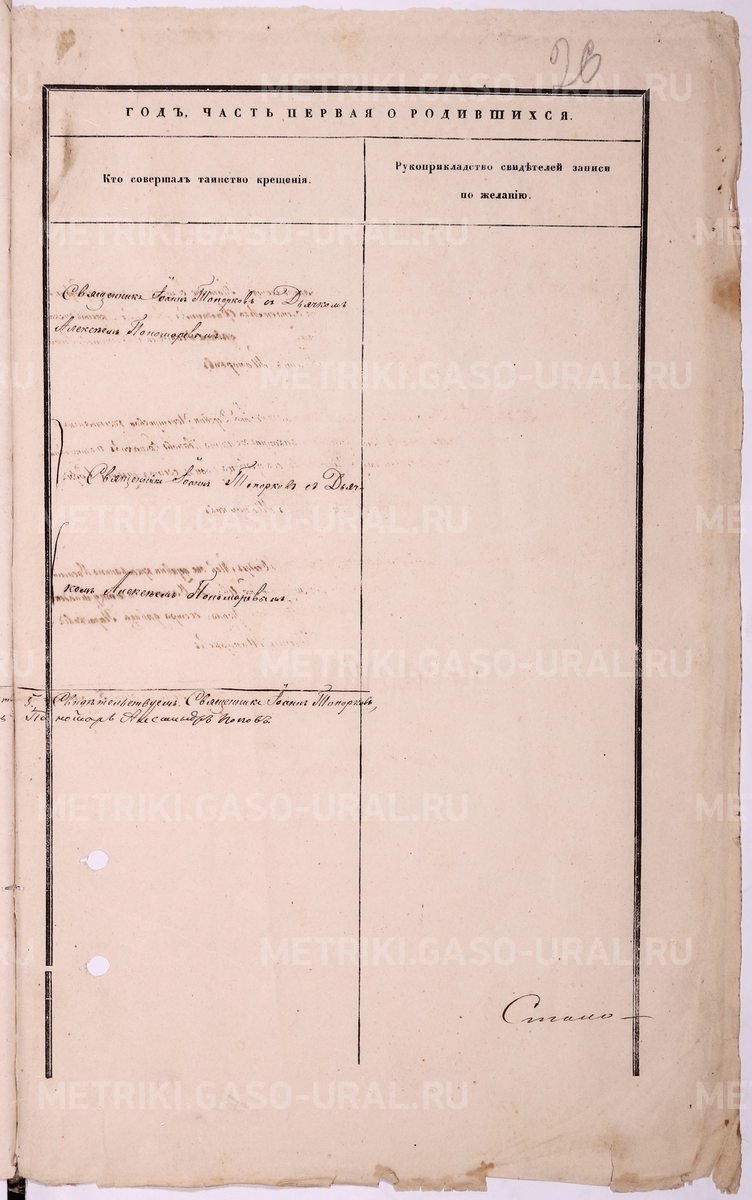 26
ГОДЪ, ЧАСТЬ ПЕРВАЯ О РОДИВШИХСЯ.
Кто совершалъ таинство крещенія.
Рукоприкладство свидѣтелей записи
по желанію.
Священникъ Іоаннъ Топорковъ съ Дьячкомъ
Алексѣемъ Пономаревымъ.
Священникъ Іоаннъ Топорковъ съ Дьяч-
комъ Алексѣемъ Пономаревымъ.
Свидѣтельствуемъ: Священникъ Іоаннъ Топорковъ,
номарь Александръ Поповъ.
METRIKI.GASO-URAL.RU